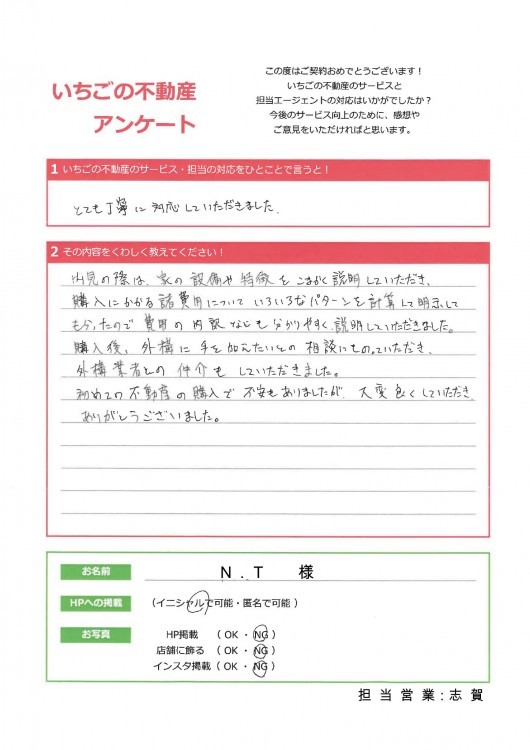 いちごの不動産
アンケート
この度はご契約おめでとうございます！
いちごの不動産のサービスと
担当エージェントの対応はいかがでしたか？
今後のサービス向上のために、感想や
ご意見をいただければと思います。
1 いちごの不動産のサービス・担当の対応をひとことで言うと！
とても丁寧に対応していただきました。
2 その内容をくわしく教えてください！
内見の際は、家の設備や特徴をこまかく説明していただき、
購入にかかる諸費用についていろいろなパターンを計算して明示して
もらったので費用の内訳なども分かりやすく説明していただきました。
購入後、外構に手を加えたいとの相談にものっていただき、
外構業者との仲介もしていただきました。
初めての不動産の購入で不安もありましたが、大変良くしていただき
ありがとうございました。
お名前 N.T 様
HPへの掲載 （イニシャルで可能・匿名で可能）
お写真 HP掲載 （OK・NG）
店舗に飾る （OK・NG）
インスタ掲載（OK・NG）
担当営業：志賀